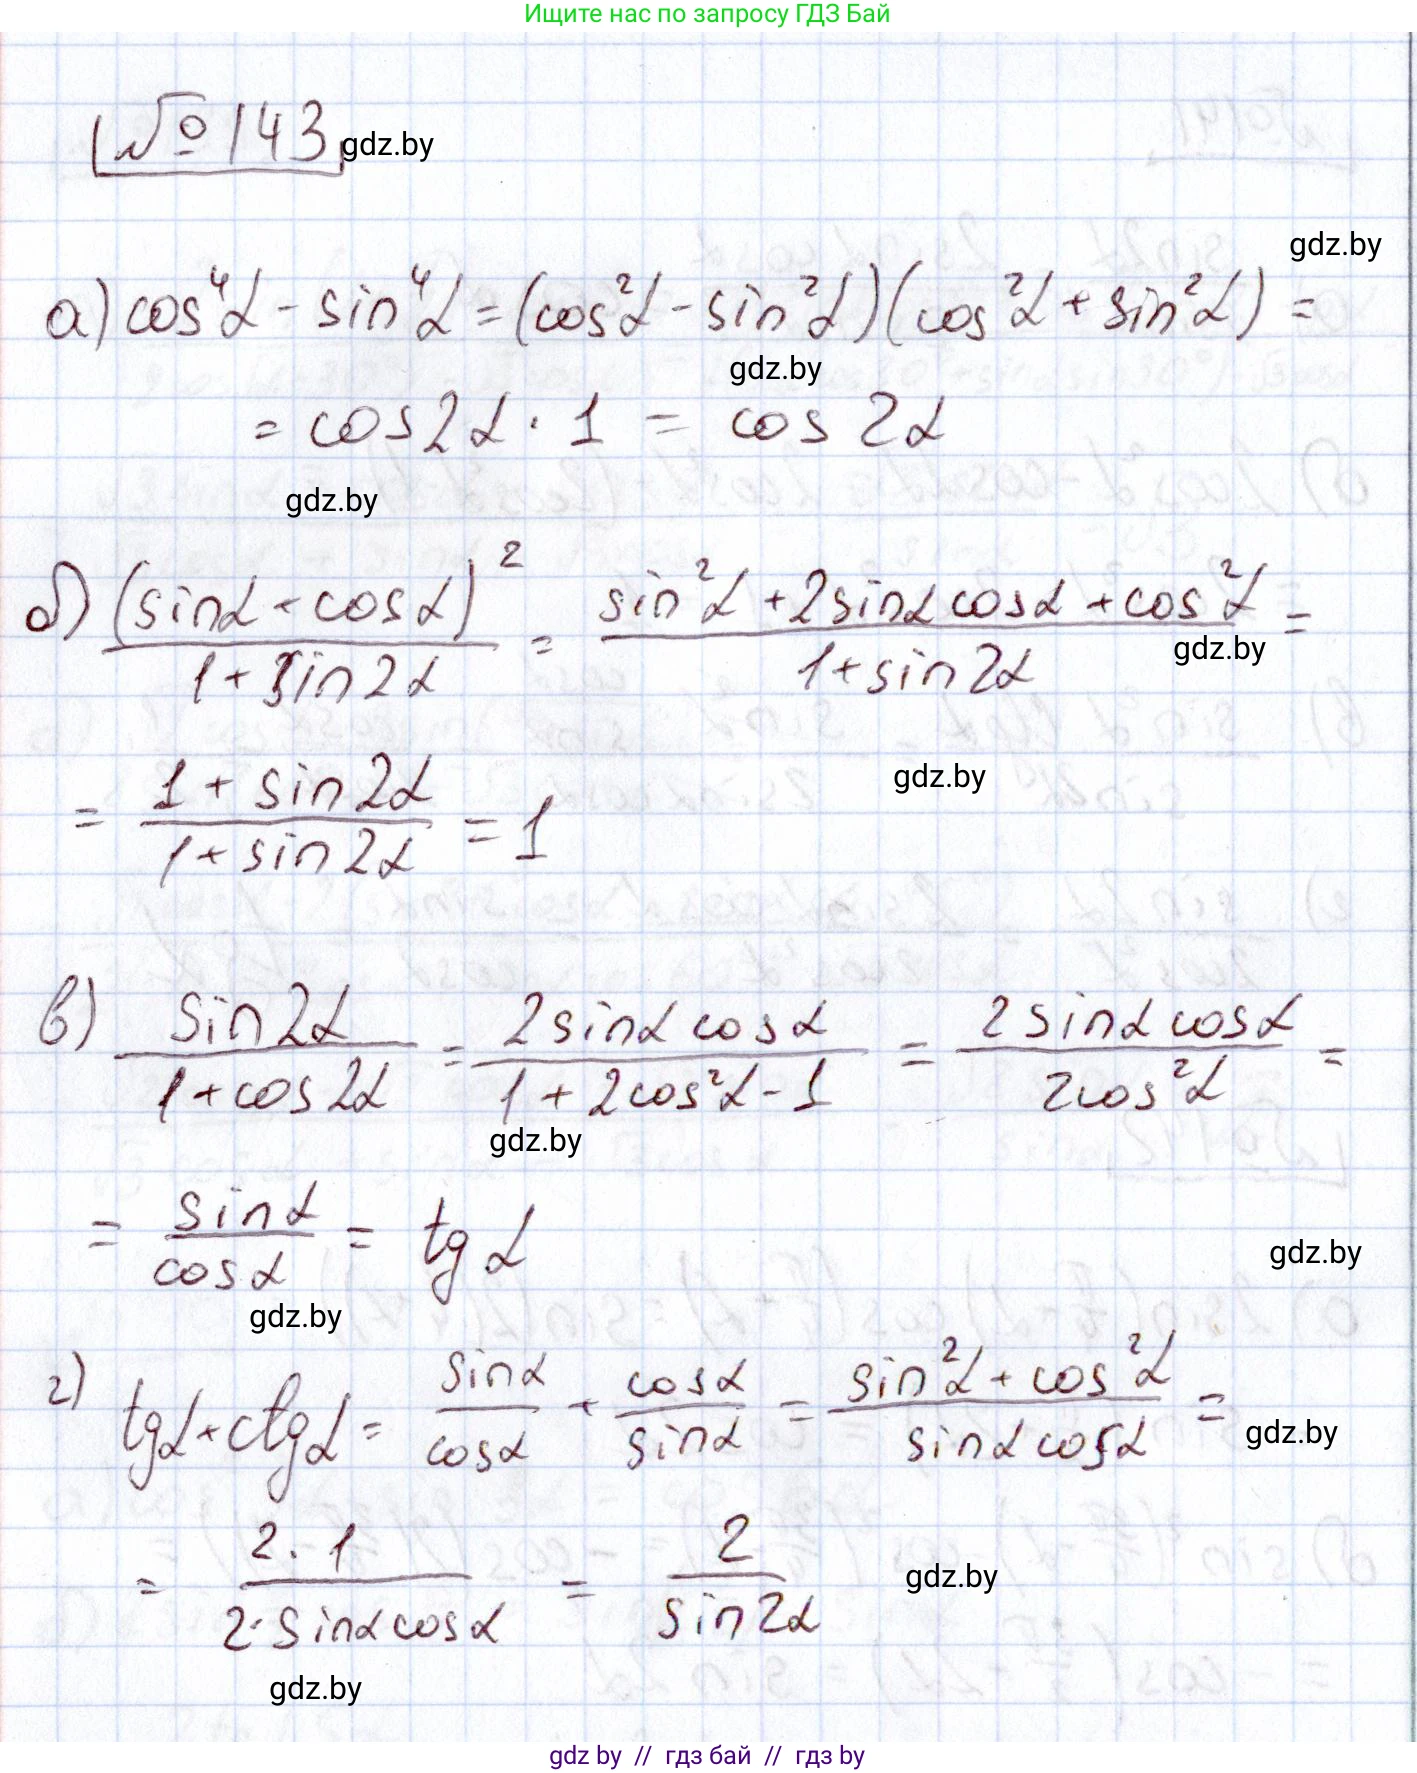 Ищите нас по запросу ГДЗ Бай
№ 143
gdz.by
gdz.by
а) cos⁴α - sin⁴α = (cos²α - sin²α)(cos²α + sin²α) =
gdz.by
= cos2α · 1 = cos 2α
gdz.by
б) (sinα + cosα)² / 1+sin2α = sin²α + 2sinα cosα + cos²α / 1+sin2α =
gdz.by
gdz.by
= 1 + sin2α / 1+sin2α = 1
в) sin2α / 1+cos2α = 2sinα cosα / 1 + 2cos²α - 1 = 2sinα cosα / 2cos²α =
gdz.by
= sinα / cosα = tgα
gdz.by
gdz.by
г) tgα + ctgα = sinα / cosα + cosα / sinα = sin²α + cos²α / sinα cosα =
gdz.by
= 2·1 / 2·sinα cosα = 2 / sin2α
gdz.by
gdz.by
gdz by // гдз бай // гдз by